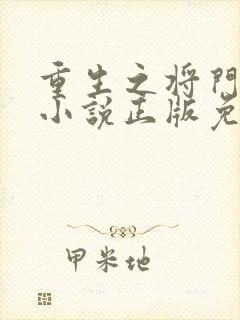 重生之将門
小說正版免
甲米地